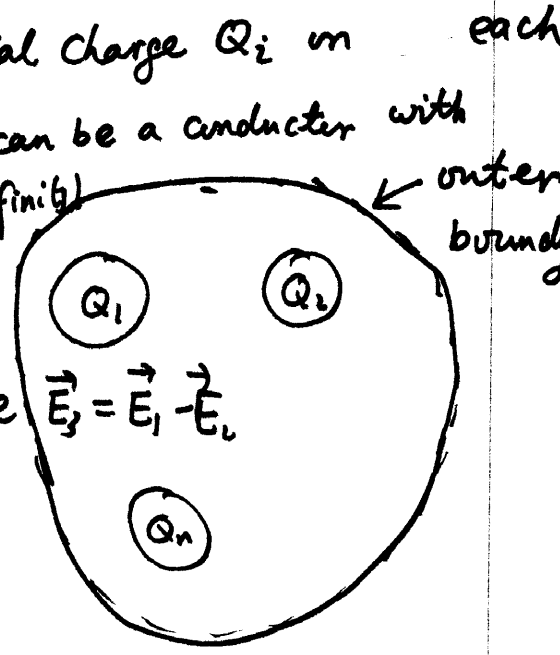 al charge Qi in each
can be a conducter with
finity) outer
bound
Q1 Q2
E3 = E1 - E2
Qn